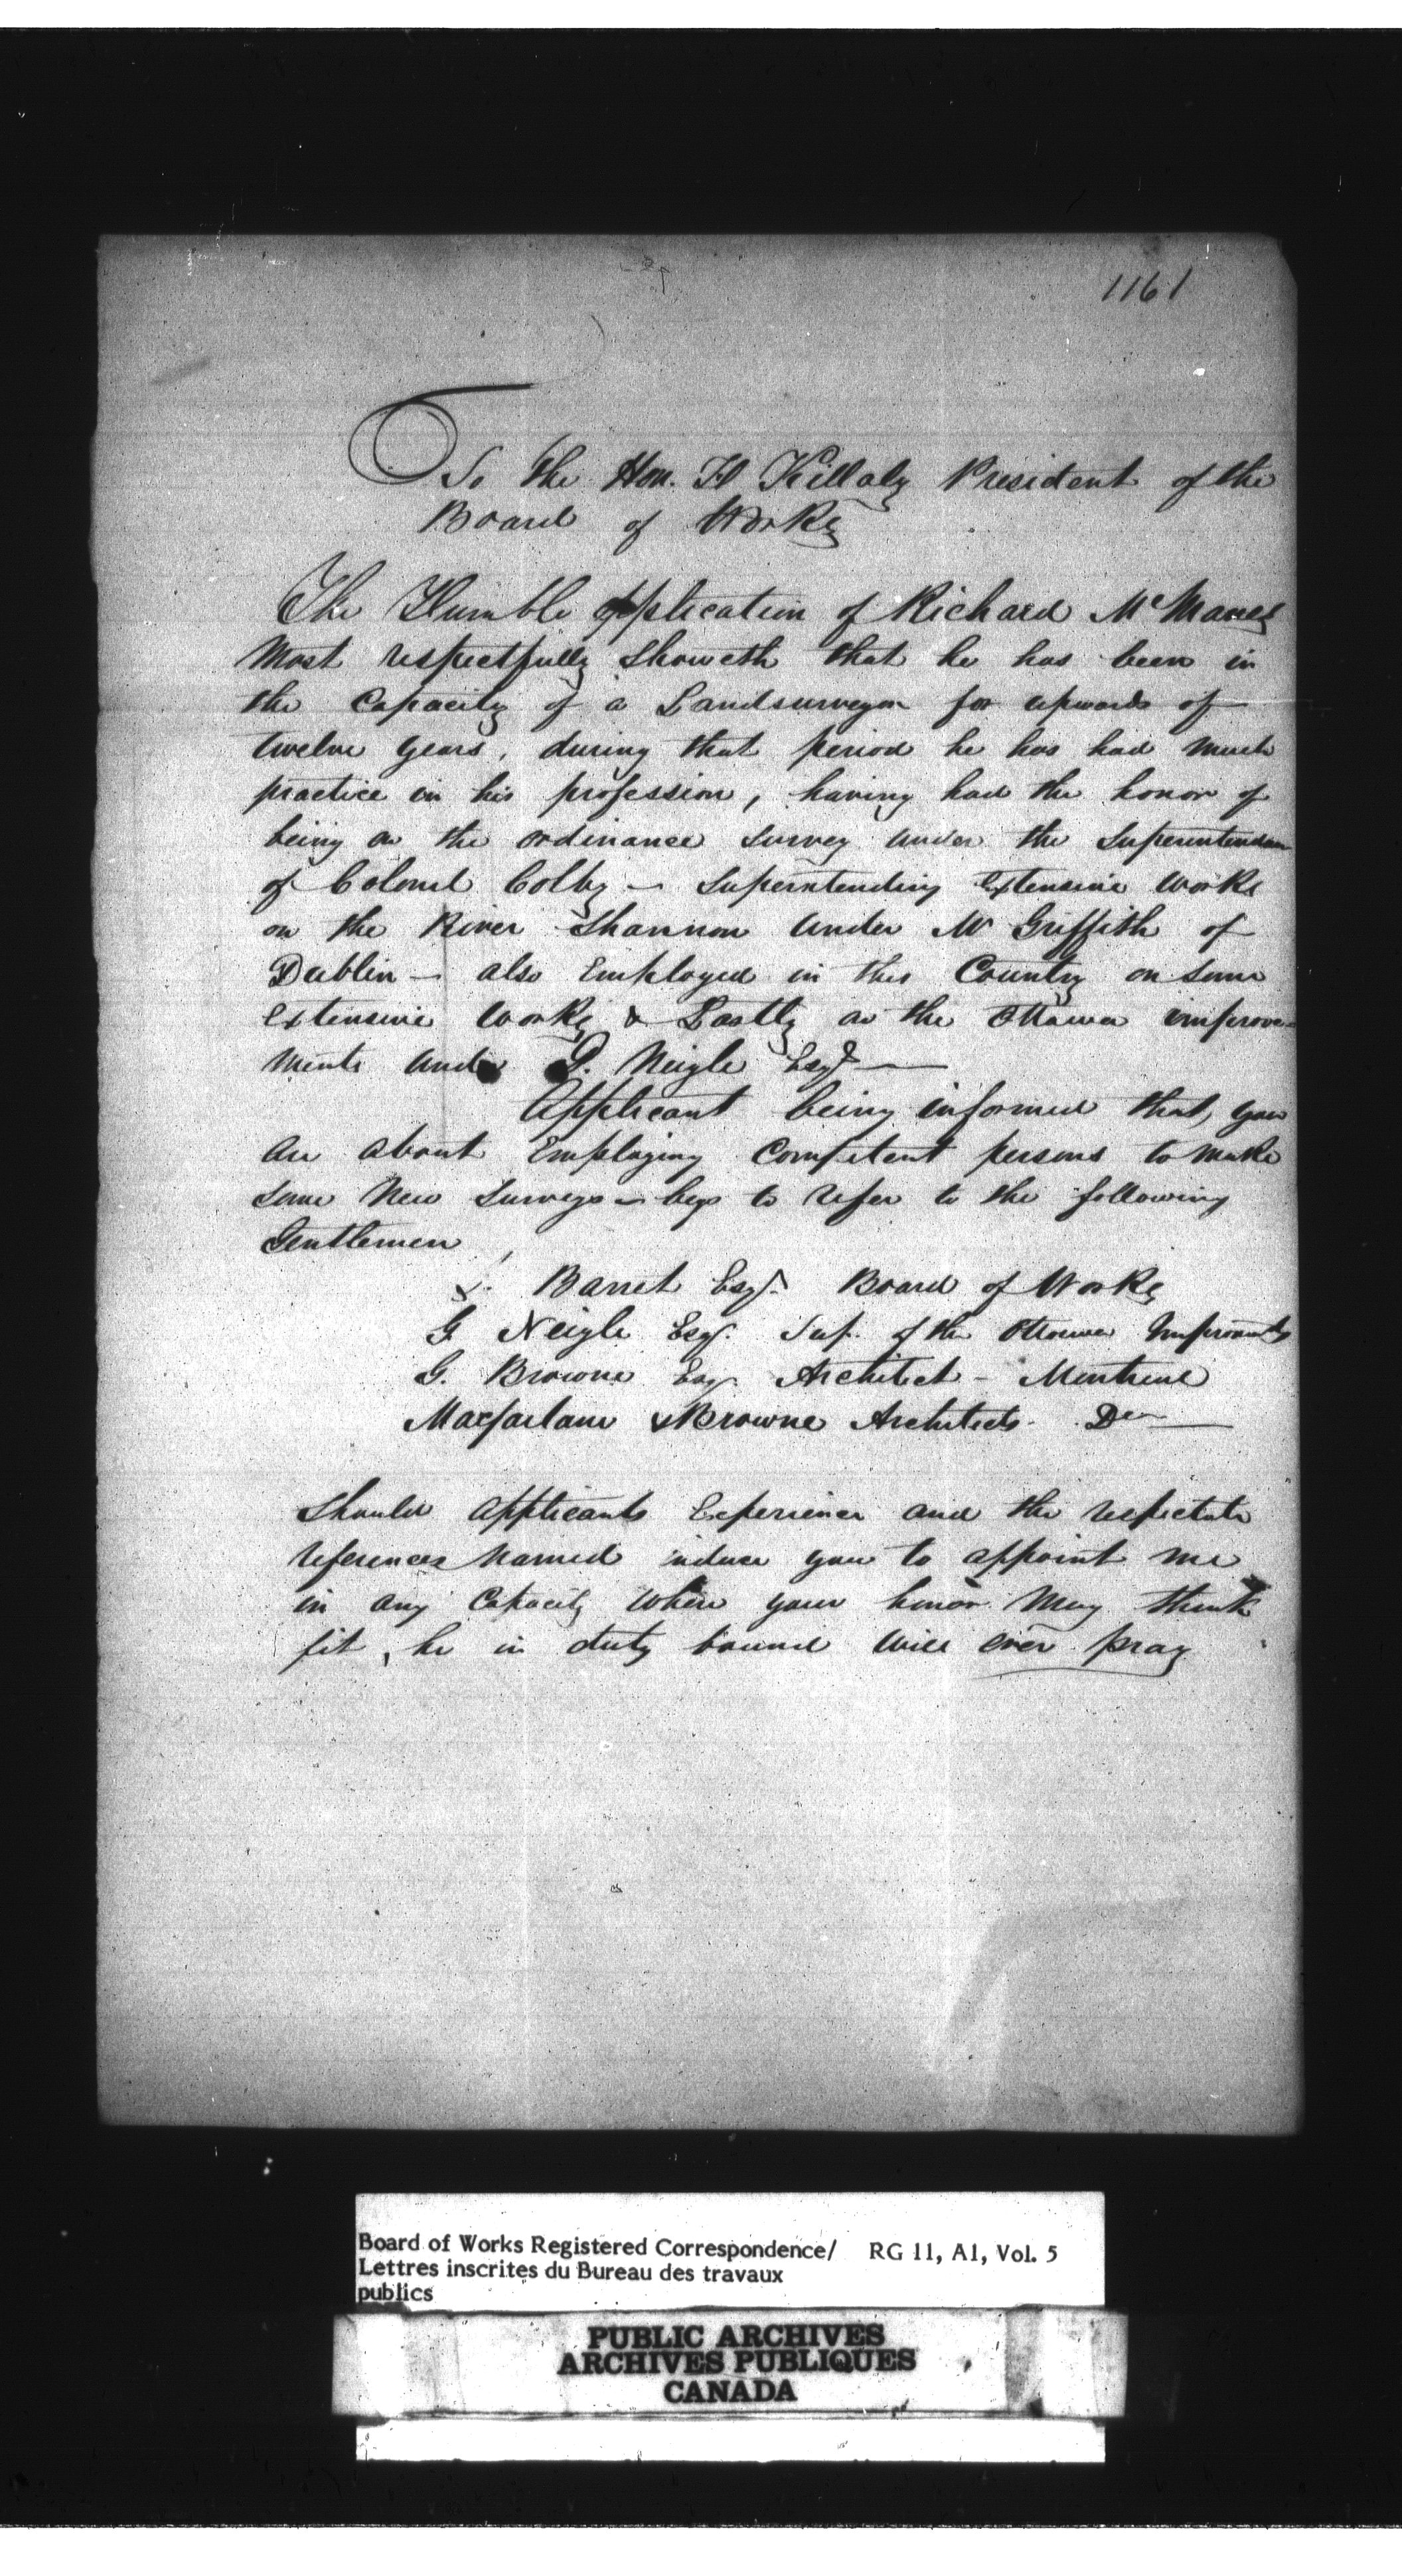 1161
To the Hon. H Killaly President of the
Board of Works
The Humble Application of Richard Mc
Most respectfully Showeth that he has been in
the Capacity of a Landsurveyor for upwards of
twelve years, during that period he has had much
practice in his profession, having had the honor of
being on the ordinance survey under the
of Colonel Colby – Superintending Extensive works
on the River Shannon under Mr Griffith of
Dublin – also Employed in this Country on some
extensive works & Lastly on the Ottawa improve-
ments under Neigle Esqr
Applicant being informed that, you
are about Employing Competent persons to make
some New Surveys – begs to refer to the following
Gentlemen
Barret Esqr. Board of Works
G. Neigle Esqr. Sup. of the Ottowa Improvmts
G. Browne Esqr. Architect – Montreal
Macfarlane & Browne Architects. Do
Should applicants Experience and the
references named induce you to appoint me
in any Capacity where your honor May think
fit, he in duty bound will ever pray
Board of Works Registered Correspondence/ RG 11, A1, Vol. 5
Lettres inscrites du Bureau des travaux
publics
PUBLIC ARCHIVES
ARCHIVES PUBLIQUES
CANADA